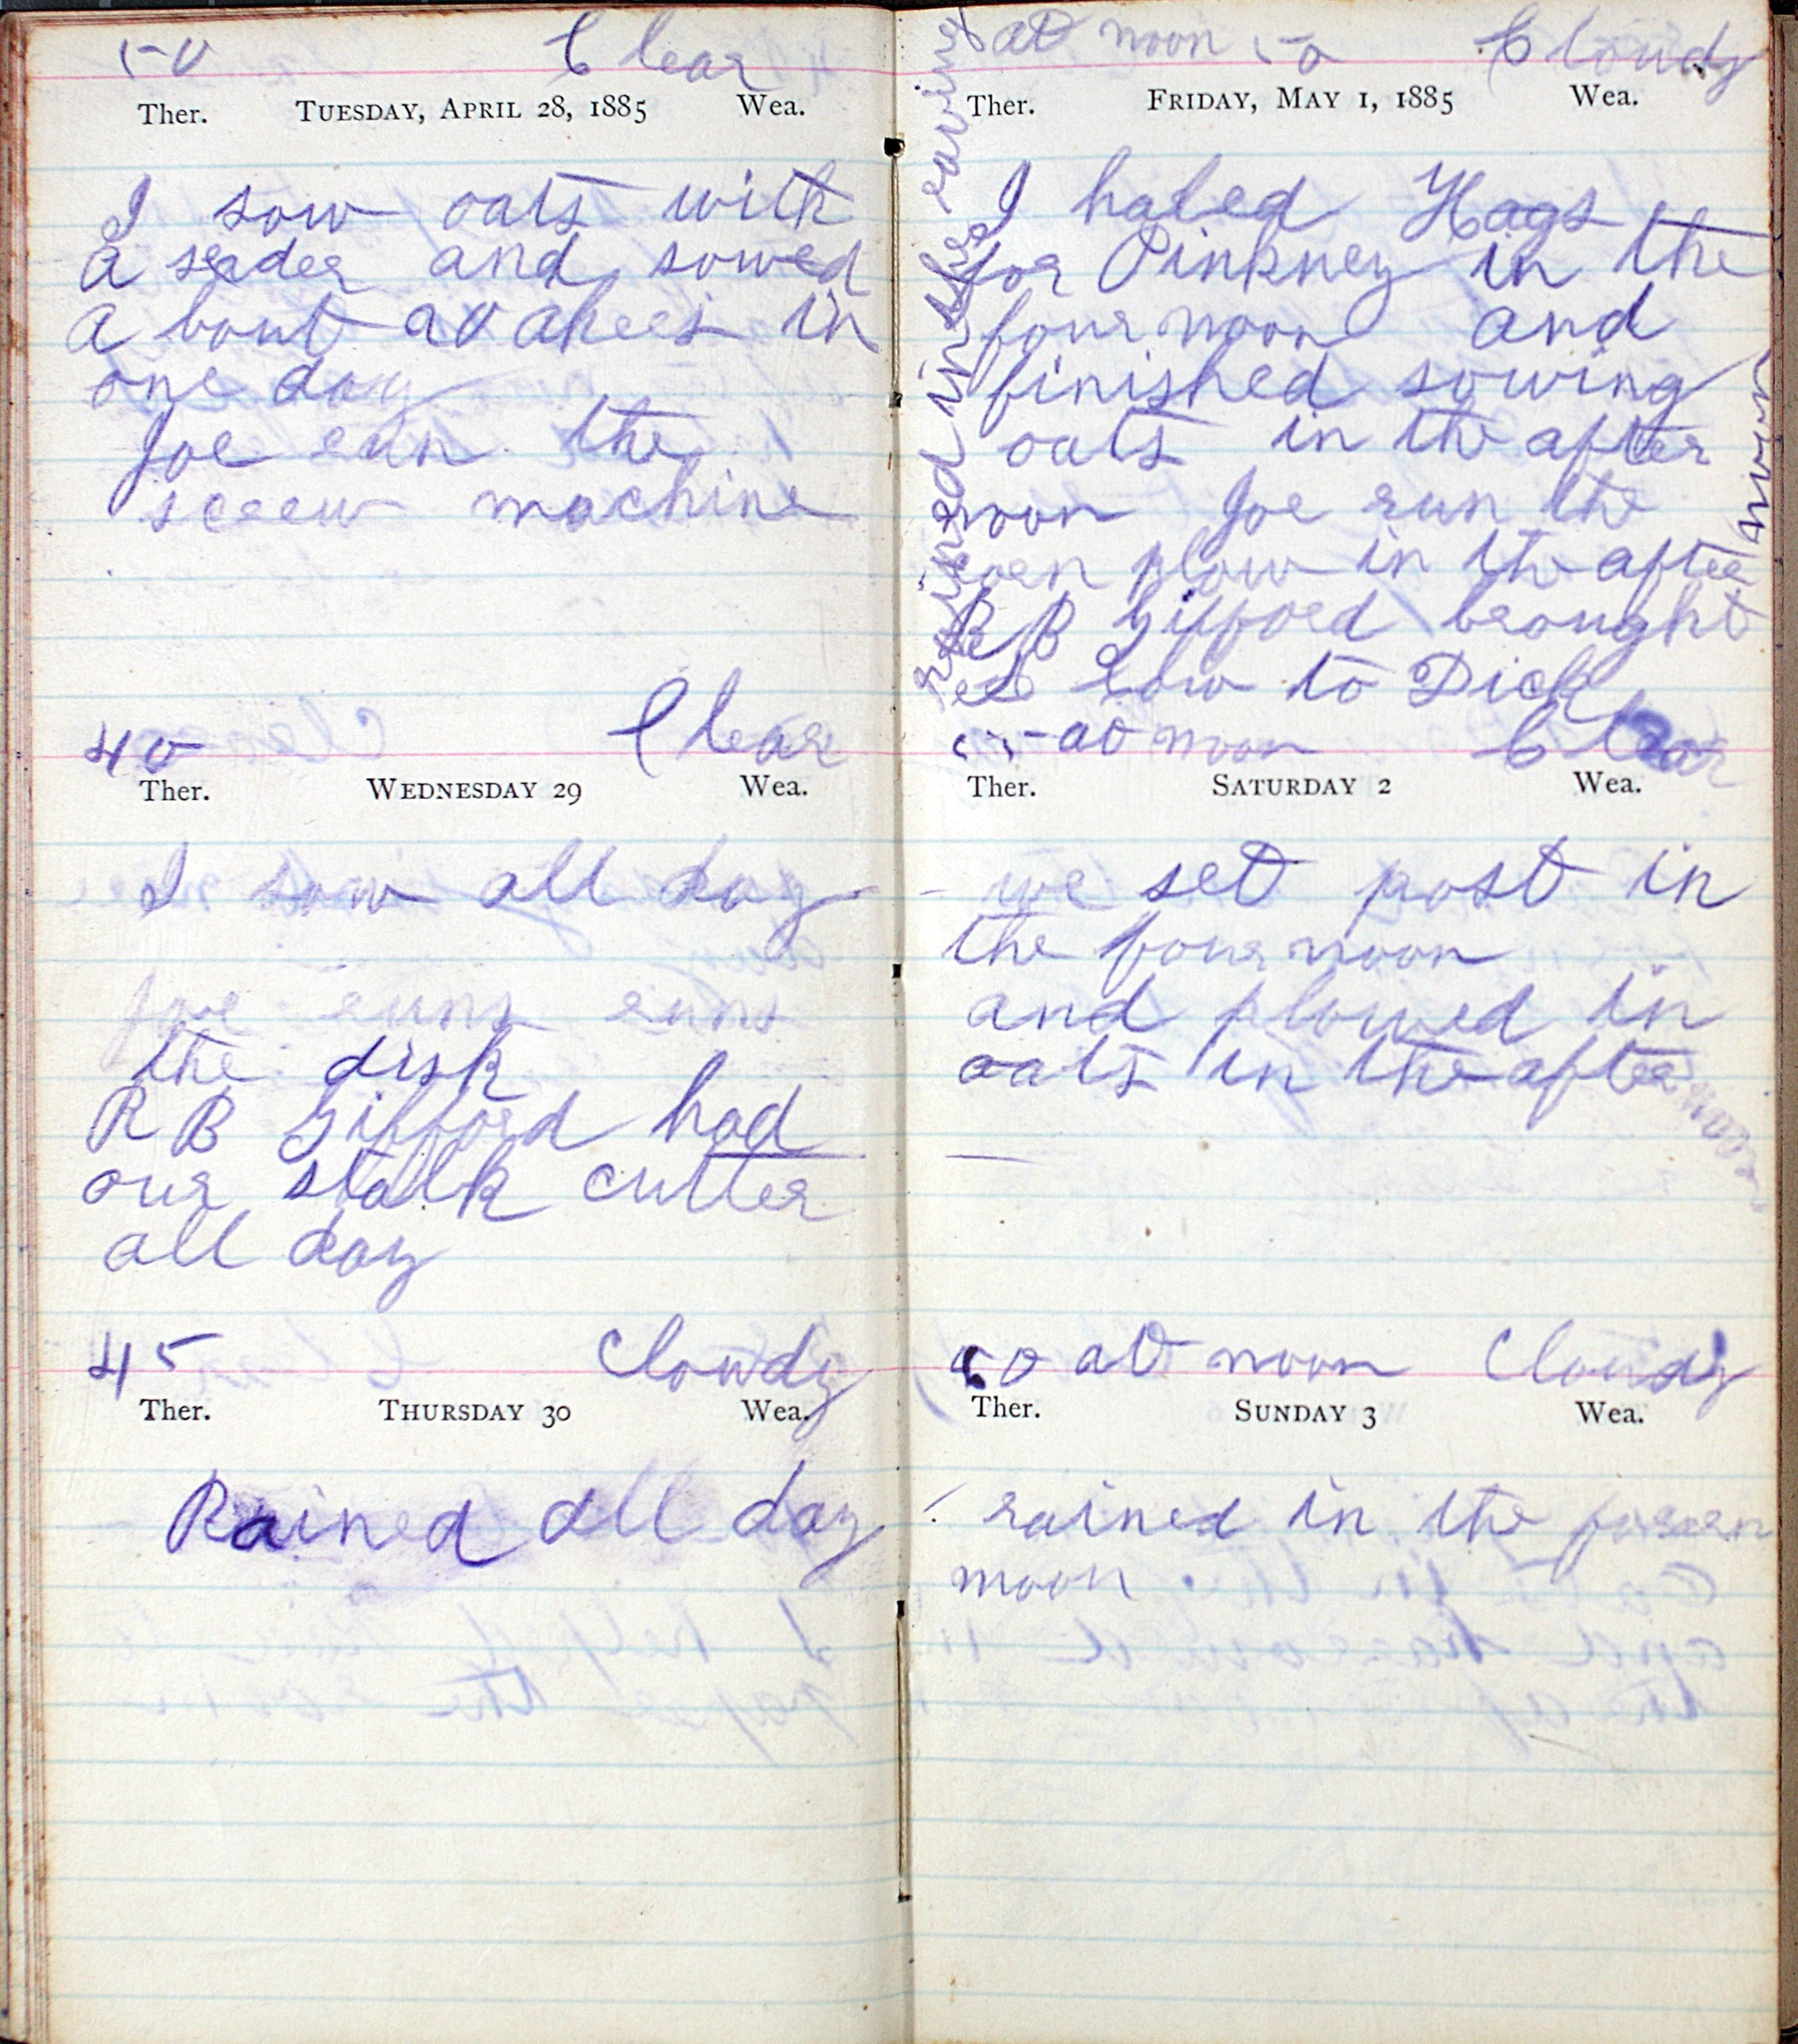 50 Clear
Ther. TUESDAY, APRIL 28, 1885 Wea.
I sow oats with
a seader and sowed
a bout 20 akers in
one day
Joe run the
screw machine
40 Clear
Ther. WEDNESDAY 29 Wea.
I sow all day
Joe runs runs
the disk
R B Gifford had
our stalk cutter
all day
45 Cloudy
Ther. THURSDAY 30 Wea.
Rained all day
at noon 50 Cloudy
Ther. FRIDAY, MAY 1, 1885 Wea.
I haled Hags
for Pinkney in the
four noon and
finished sowing
oats in the after
noon Joe run the
corn plow in the after
noon
R B Gifford brought
cow to Dick
rained in the
55 at noon Clear
Ther. SATURDAY 2 Wea.
we set post in
the four noon
and plowed in
oats in the after
noon
50 at noon Cloudy
Ther. SUNDAY 3 Wea.
rained in the
noon